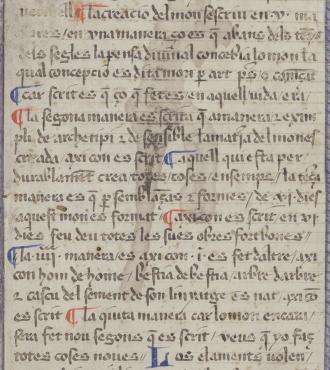 La creacio del mon sescriu en .v. ma
neres / en vna manera ço es que abans dels temps
dels segles la pensa diuinal concebia lo mon la
qual concepcio es dita mon
car scrit es q̄ ço q̄ fet es en aquell vida era /
La segona manera es scrita q̄ a manera z exem
pli de archetipi z de sensible la matia del mon es
creada axi com es scrit Aquell qui esta per
durablamēt crea totes coses ensemps / la teça
manera es q̄ p̄ semblāças z formes / de .vi. dies
aquest mon es format axi con es scrit en vi
dies feu deu totes les sues obres fort bones
La .iiii. manera es axi com .i. es fet daltre / axi
con hom de home / bestia de bestia / arbre darbre
z cascu del sement de son linyatge es nat /
es scrit La quita manera car lo mon encara /
sera fet nou segons q̄ es scrit / veus q̄ yo faç
totes coses noues Los elaments volen /